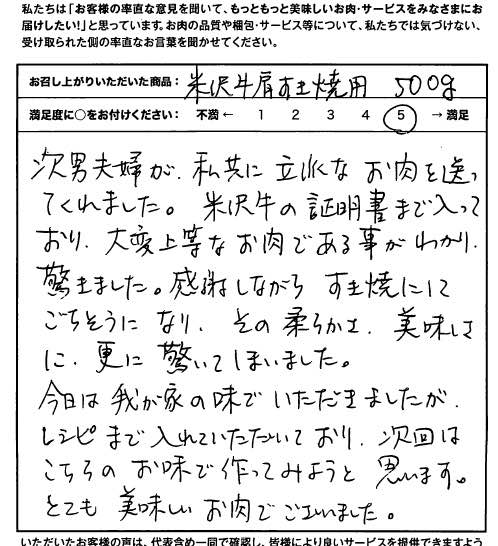 私たちは「お客様の率直な意見を聞いて、もっともっと美味しいお肉・サービスをみなさまにお
届けしたい!」と思っています。お肉の品質や梱包・サービス等について、私たちでは気づけない、
受け取られた側の率直なお言葉を聞かせてください。
お召し上がりいただいた商品: 米沢牛肩すき焼用 500g
満足度に○をお付けください: 不満 ← 1 2 3 4 5 → 満足
次男夫婦が、私共に立派なお肉を送っ
てくれました。米沢牛の証明書まで入って
おり、大変上等なお肉である事がわかり、
驚きました。感謝しながらすき焼にして
ごちそうになり、その柔らかさ、美味しさ
に、更に驚いてしまいました。
今日は我が家の味でいただきましたが、
レシピまで入れていただいており、次回は
こちらのお味で作ってみようと思います。
とても美味しいお肉でございました。
いただいたお客様の声は、代表含め一同で確認し、皆様により良いサービスを提供できますよう